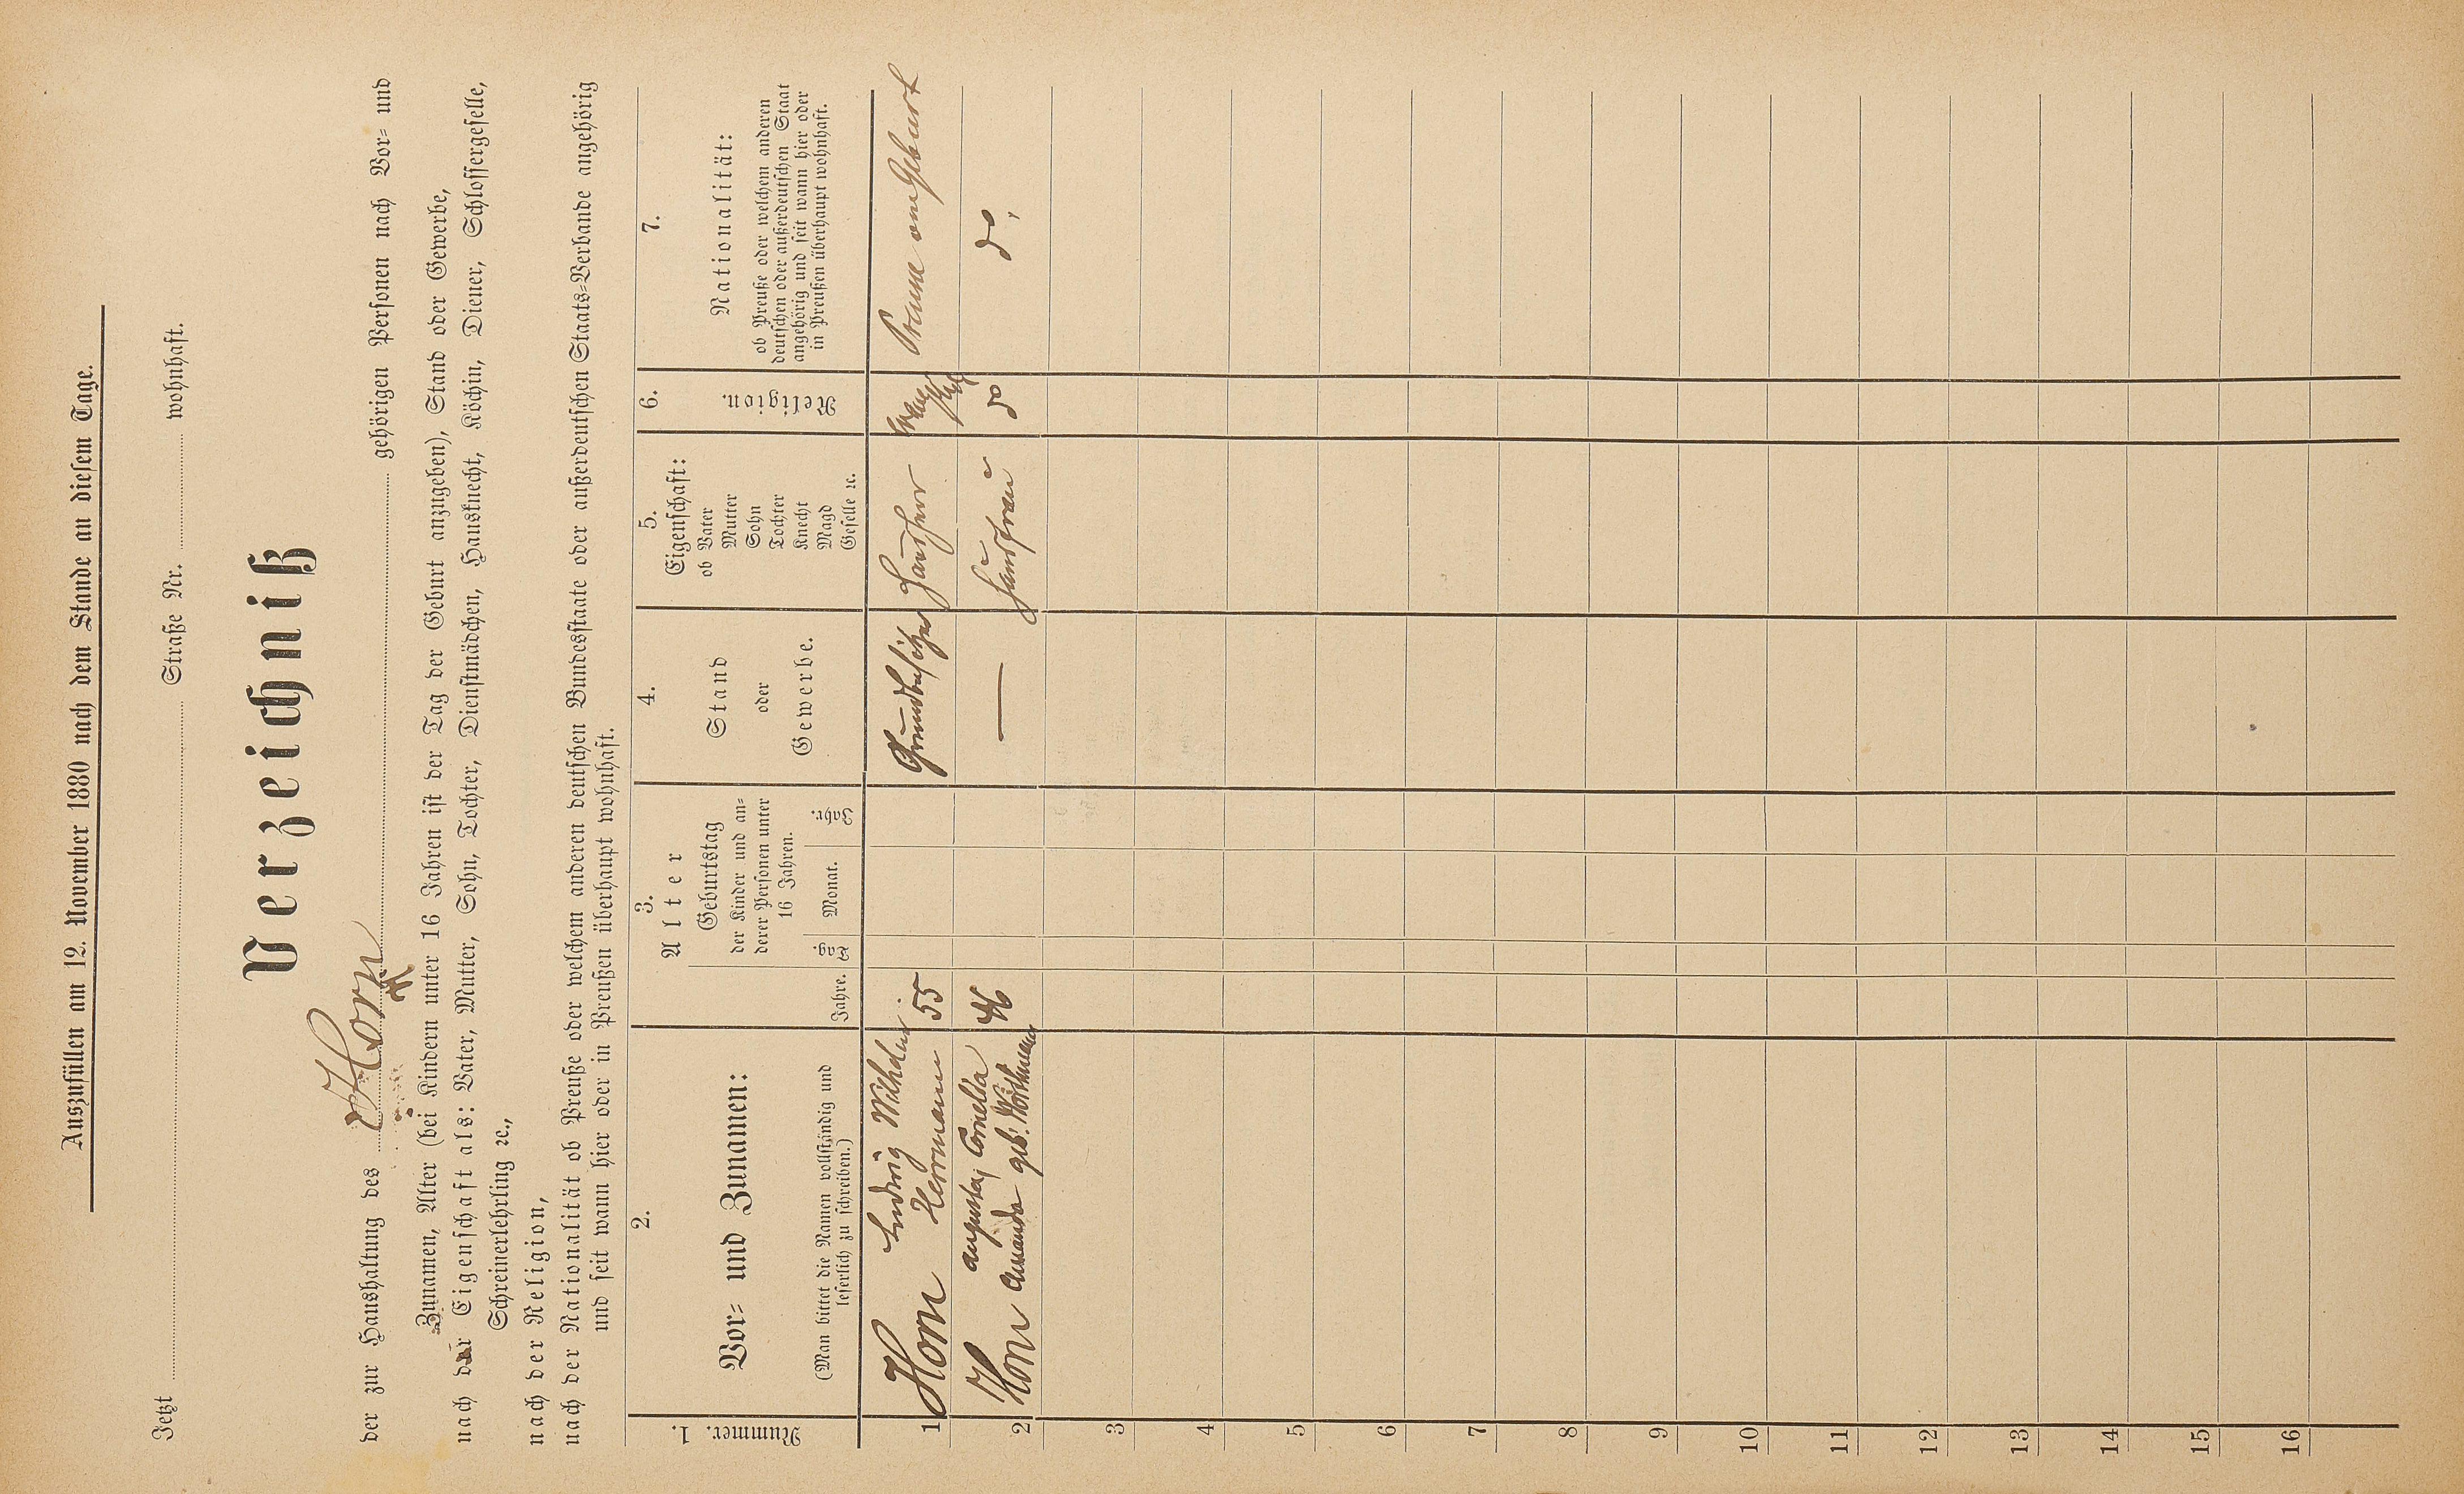 Auszufüllen am 12. November 1880 nach dem Stande an diesem Tage.
Jetzt Straße Nr. wohnhaft.
Verzeichniß
der zur Haushaltung des Horn gehörigen Personen nach Vor= und
Zunamen, Alter (bei Kindern unter 16 Jahren ist der Tag der Geburt anzugeben), Stand oder Gewerbe,
nach der Eigenschaft als: Vater, Mutter, Sohn, Tochter, Dienstmädchen, Hausknecht, Köchin, Diener, Schlossergeselle,
Schreinerlehrling ꝛc.,
nach der Religion,
nach der Nationalität ob Preuße oder welchem anderen deutschen Bundesstaate oder außerdeutschen Staats=Verbande angehörig
und seit wann hier oder in Preußen überhaupt wohnhaft.
1.
Nummer.
2.
Vor= und Zunamen:
(Man bittet die Namen vollständig und
leserlich zu schreiben.)
3.
Alter
Jahre.
Geburtstag
der Kinder und an=
derer Personen unter
16 Jahren.
Tag.
Monat.
Jahr.
4.
Stand
oder
Gewerbe.
5.
Eigenschaft:
ob Vater
Mutter
Sohn
Tochter
Knecht
Magd
Geselle ꝛc.
6.
Religion.
7.
Nationalität:
ob Preuße oder welchem anderen
deutschen oder außerdeutschen Staat
angehörig und seit wann hier oder
in Preußen überhaupt wohnhaft.
1 Horn Ludwig Wilhelm
Hermann 55 Grundbesitzer Hausherr Preusse von Geburt
2 Horn augusta, Cornelia
Amanda geb. 46 — Hausfrau do do.
3
4
5
6
7
8
9
10
11
12
13
14
15
16